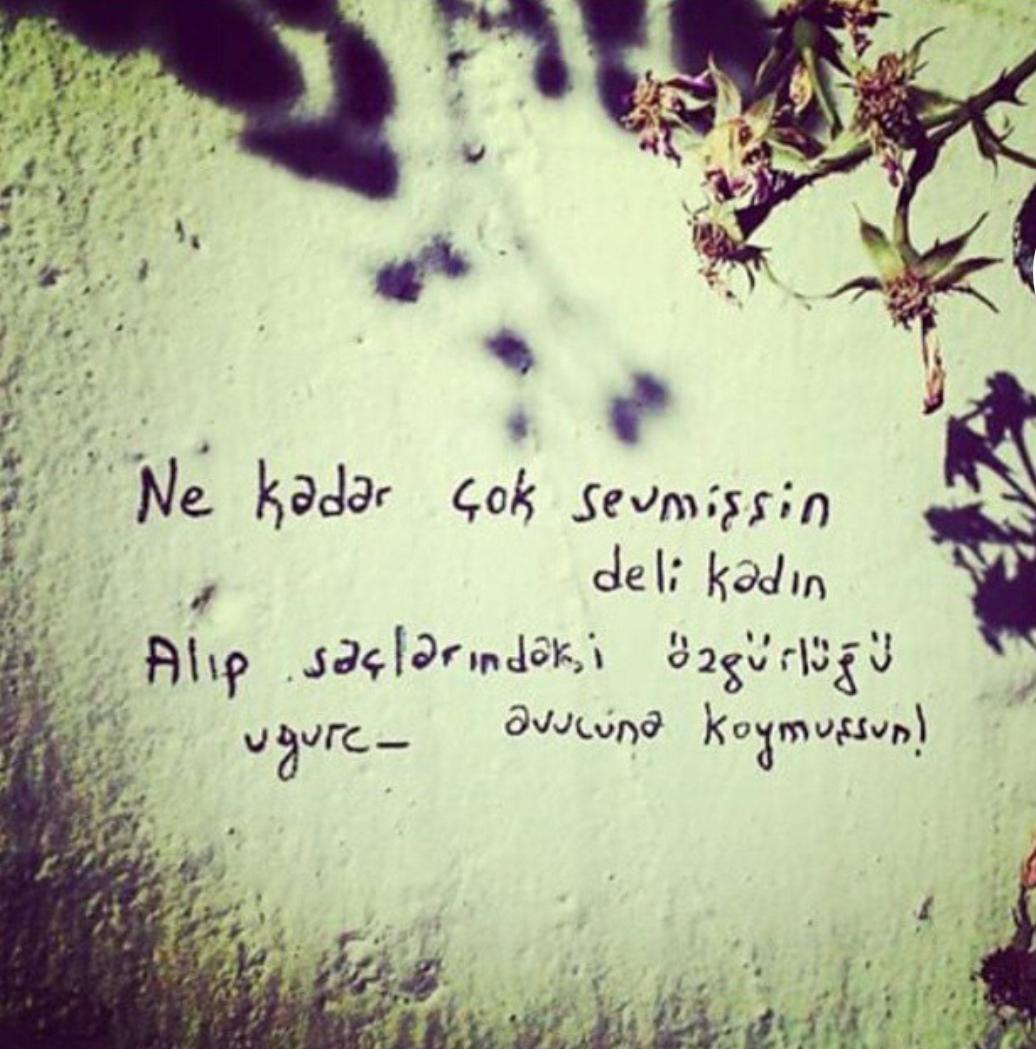 Ne kadar çok sevmişsin
deli kadın
Alıp saçlarındaki özgürlüğü
avucuna koymuşsun!
ugurc_